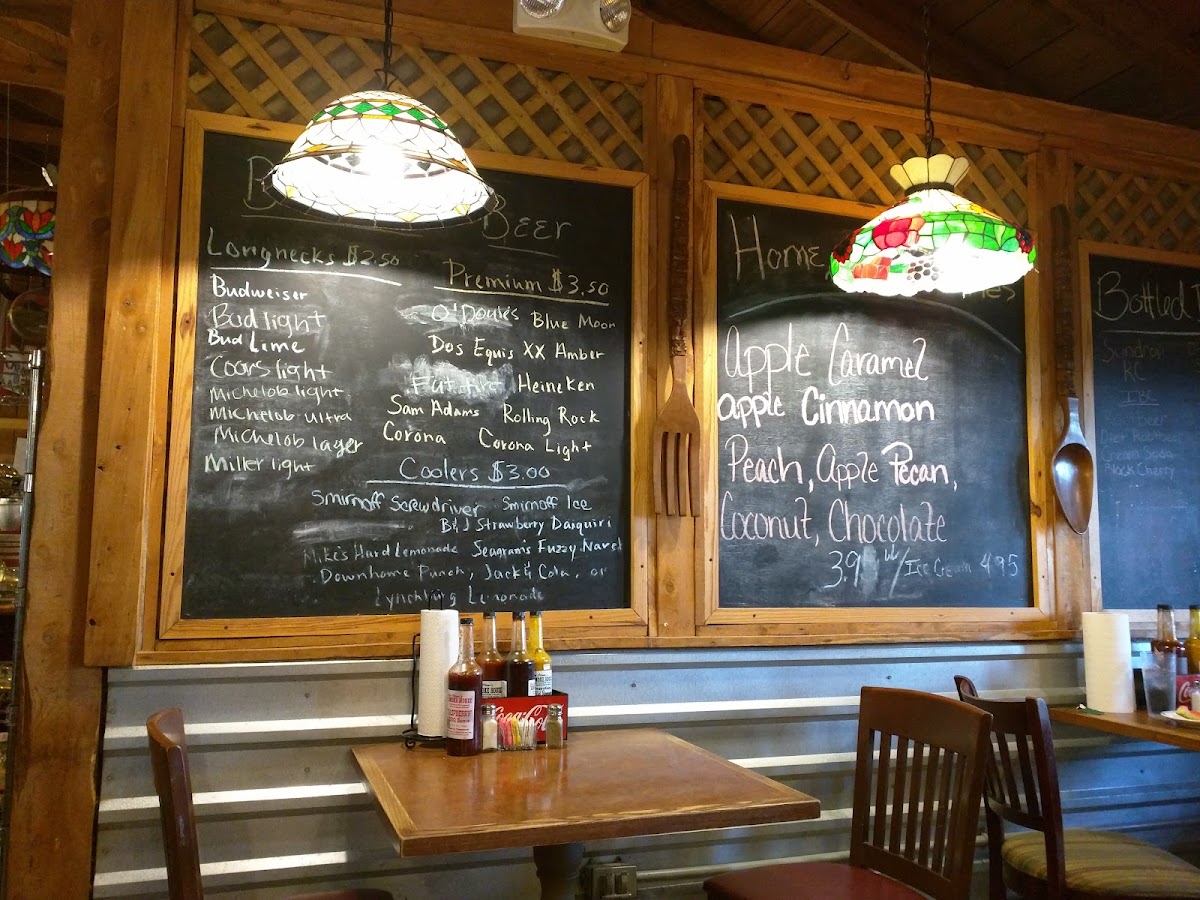 Beer
Longnecks $2.50
Budweiser
Bud light
Bud Lime
Coors light
Michelob light
Michelob ultra
Michelob lager
Miller light
Premium $3.50
O'Doule's Blue Moon
Dos Equis XX Amber
Fat Heineken
Sam Adams Rolling Rock
Corona Corona Light
Coolers $3.00
Smirnoff Screwdriver Smirnoff Ice
B&J Strawberry Daiquiri
Mike's Hard Lemonade Seagram's Fuzzy Navel
Downhome Punch, Jack & Cola, or
Lynchburg Lemonade
Home
Apple Caramel
apple Cinnamon
Peach, Apple Pecan,
Coconut, Chocolate
3.9 w/ Ice Cream 4.95
Bottled
Sundrop
RC
IBC
Beer
Diet Rootbeer
Cream Soda
Black Cherry
Coca-Cola